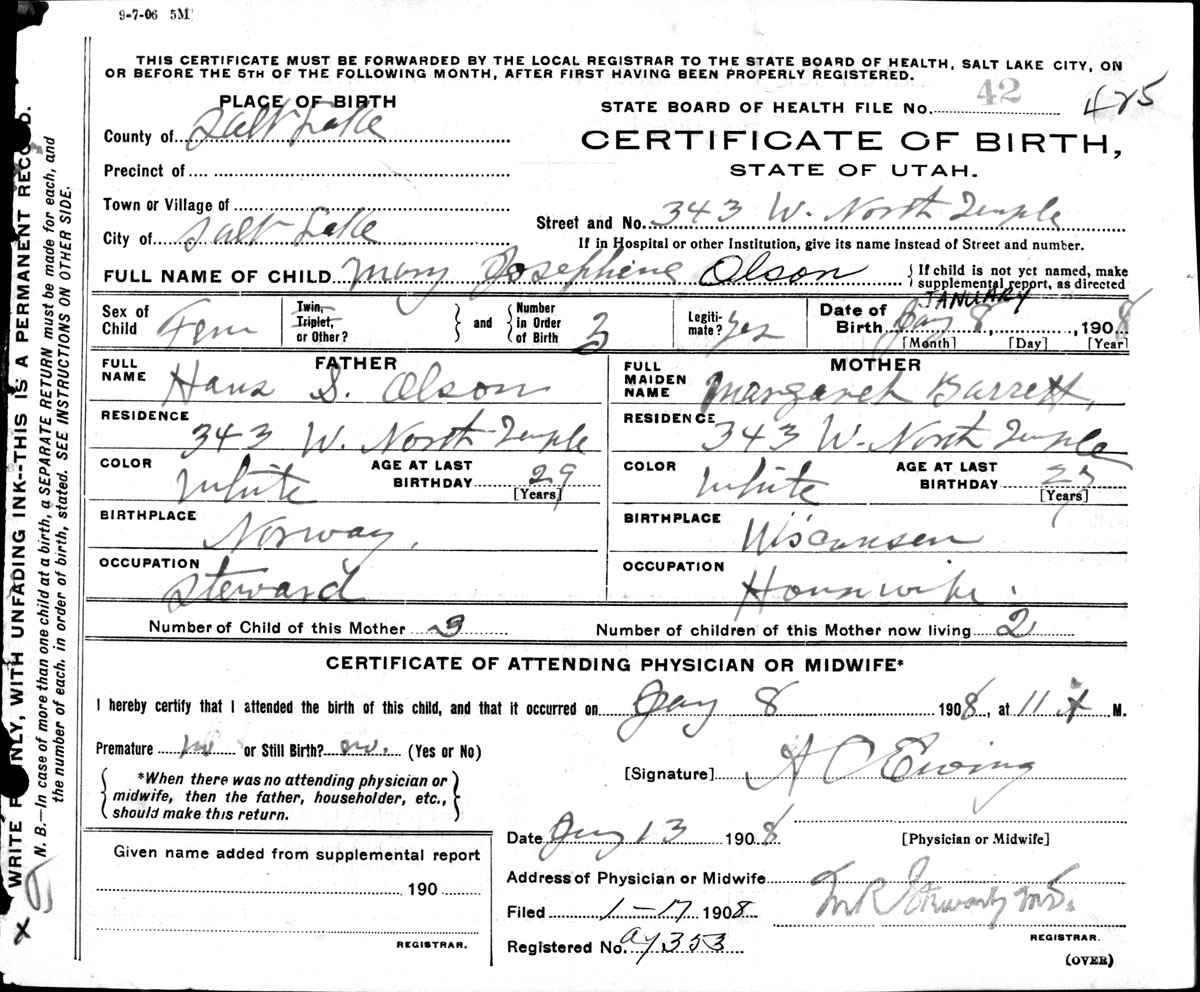 9-7-06 5M
THIS CERTIFICATE MUST BE FORWARDED BY THE LOCAL REGISTRAR TO THE STATE BOARD OF HEALTH, SALT LAKE CITY, ON
OR BEFORE THE 5TH OF THE FOLLOWING MONTH, AFTER FIRST HAVING BEEN PROPERLY REGISTERED.
PLACE OF BIRTH
County of Salt Lake
Precinct of
Town or Village of
City of Salt Lake
STATE BOARD OF HEALTH FILE No. 42 425
CERTIFICATE OF BIRTH,
STATE OF UTAH.
Street and No. 343 W. North Temple
If in Hospital or other Institution, give its name instead of Street and number.
FULL NAME OF CHILD Mary Josephine Olson { If child is not yet named, make
supplemental report, as directed
Sex of Child Fem
Twin, Triplet, or Other? } and { Number in Order of Birth 3
Legitimate? Yes
Date of Birth JANUARY 8, 1908
[Month] [Day] [Year]
FATHER
FULL NAME Hans S. Olson
RESIDENCE 343 W. North Temple
COLOR White AGE AT LAST BIRTHDAY 29
[Years]
BIRTHPLACE Norway.
OCCUPATION Steward
MOTHER
FULL MAIDEN NAME Margaret Barrett,
RESIDENCE 343 W. North Temple
COLOR White AGE AT LAST BIRTHDAY
[Years]
BIRTHPLACE Wisconsen
OCCUPATION Housewife.
Number of Child of this Mother 3 Number of children of this Mother now living 2
CERTIFICATE OF ATTENDING PHYSICIAN OR MIDWIFE*
I hereby certify that I attended the birth of this child, and that it occurred on Jany 8 1908, at 11 M.
Premature no or Still Birth? no. (Yes or No)
{ *When there was no attending physician or
midwife, then the father, householder, etc.,
should make this return. }
[Signature] A C Ewing
Date Jany 13 1908
[Physician or Midwife]
Given name added from supplemental report
190
REGISTRAR.
Address of Physician or Midwife
Filed 1-17 1908
Registered No. 353
REGISTRAR.
(OVER)
WRITE NLY, WITH UNFADING INK--THIS IS A PERMANENT REC D.
N. B.—In case of more than one child at a birth, a SEPARATE RETURN must be made for each, and
the number of each. in order of birth, stated. SEE INSTRUCTIONS ON OTHER SIDE.